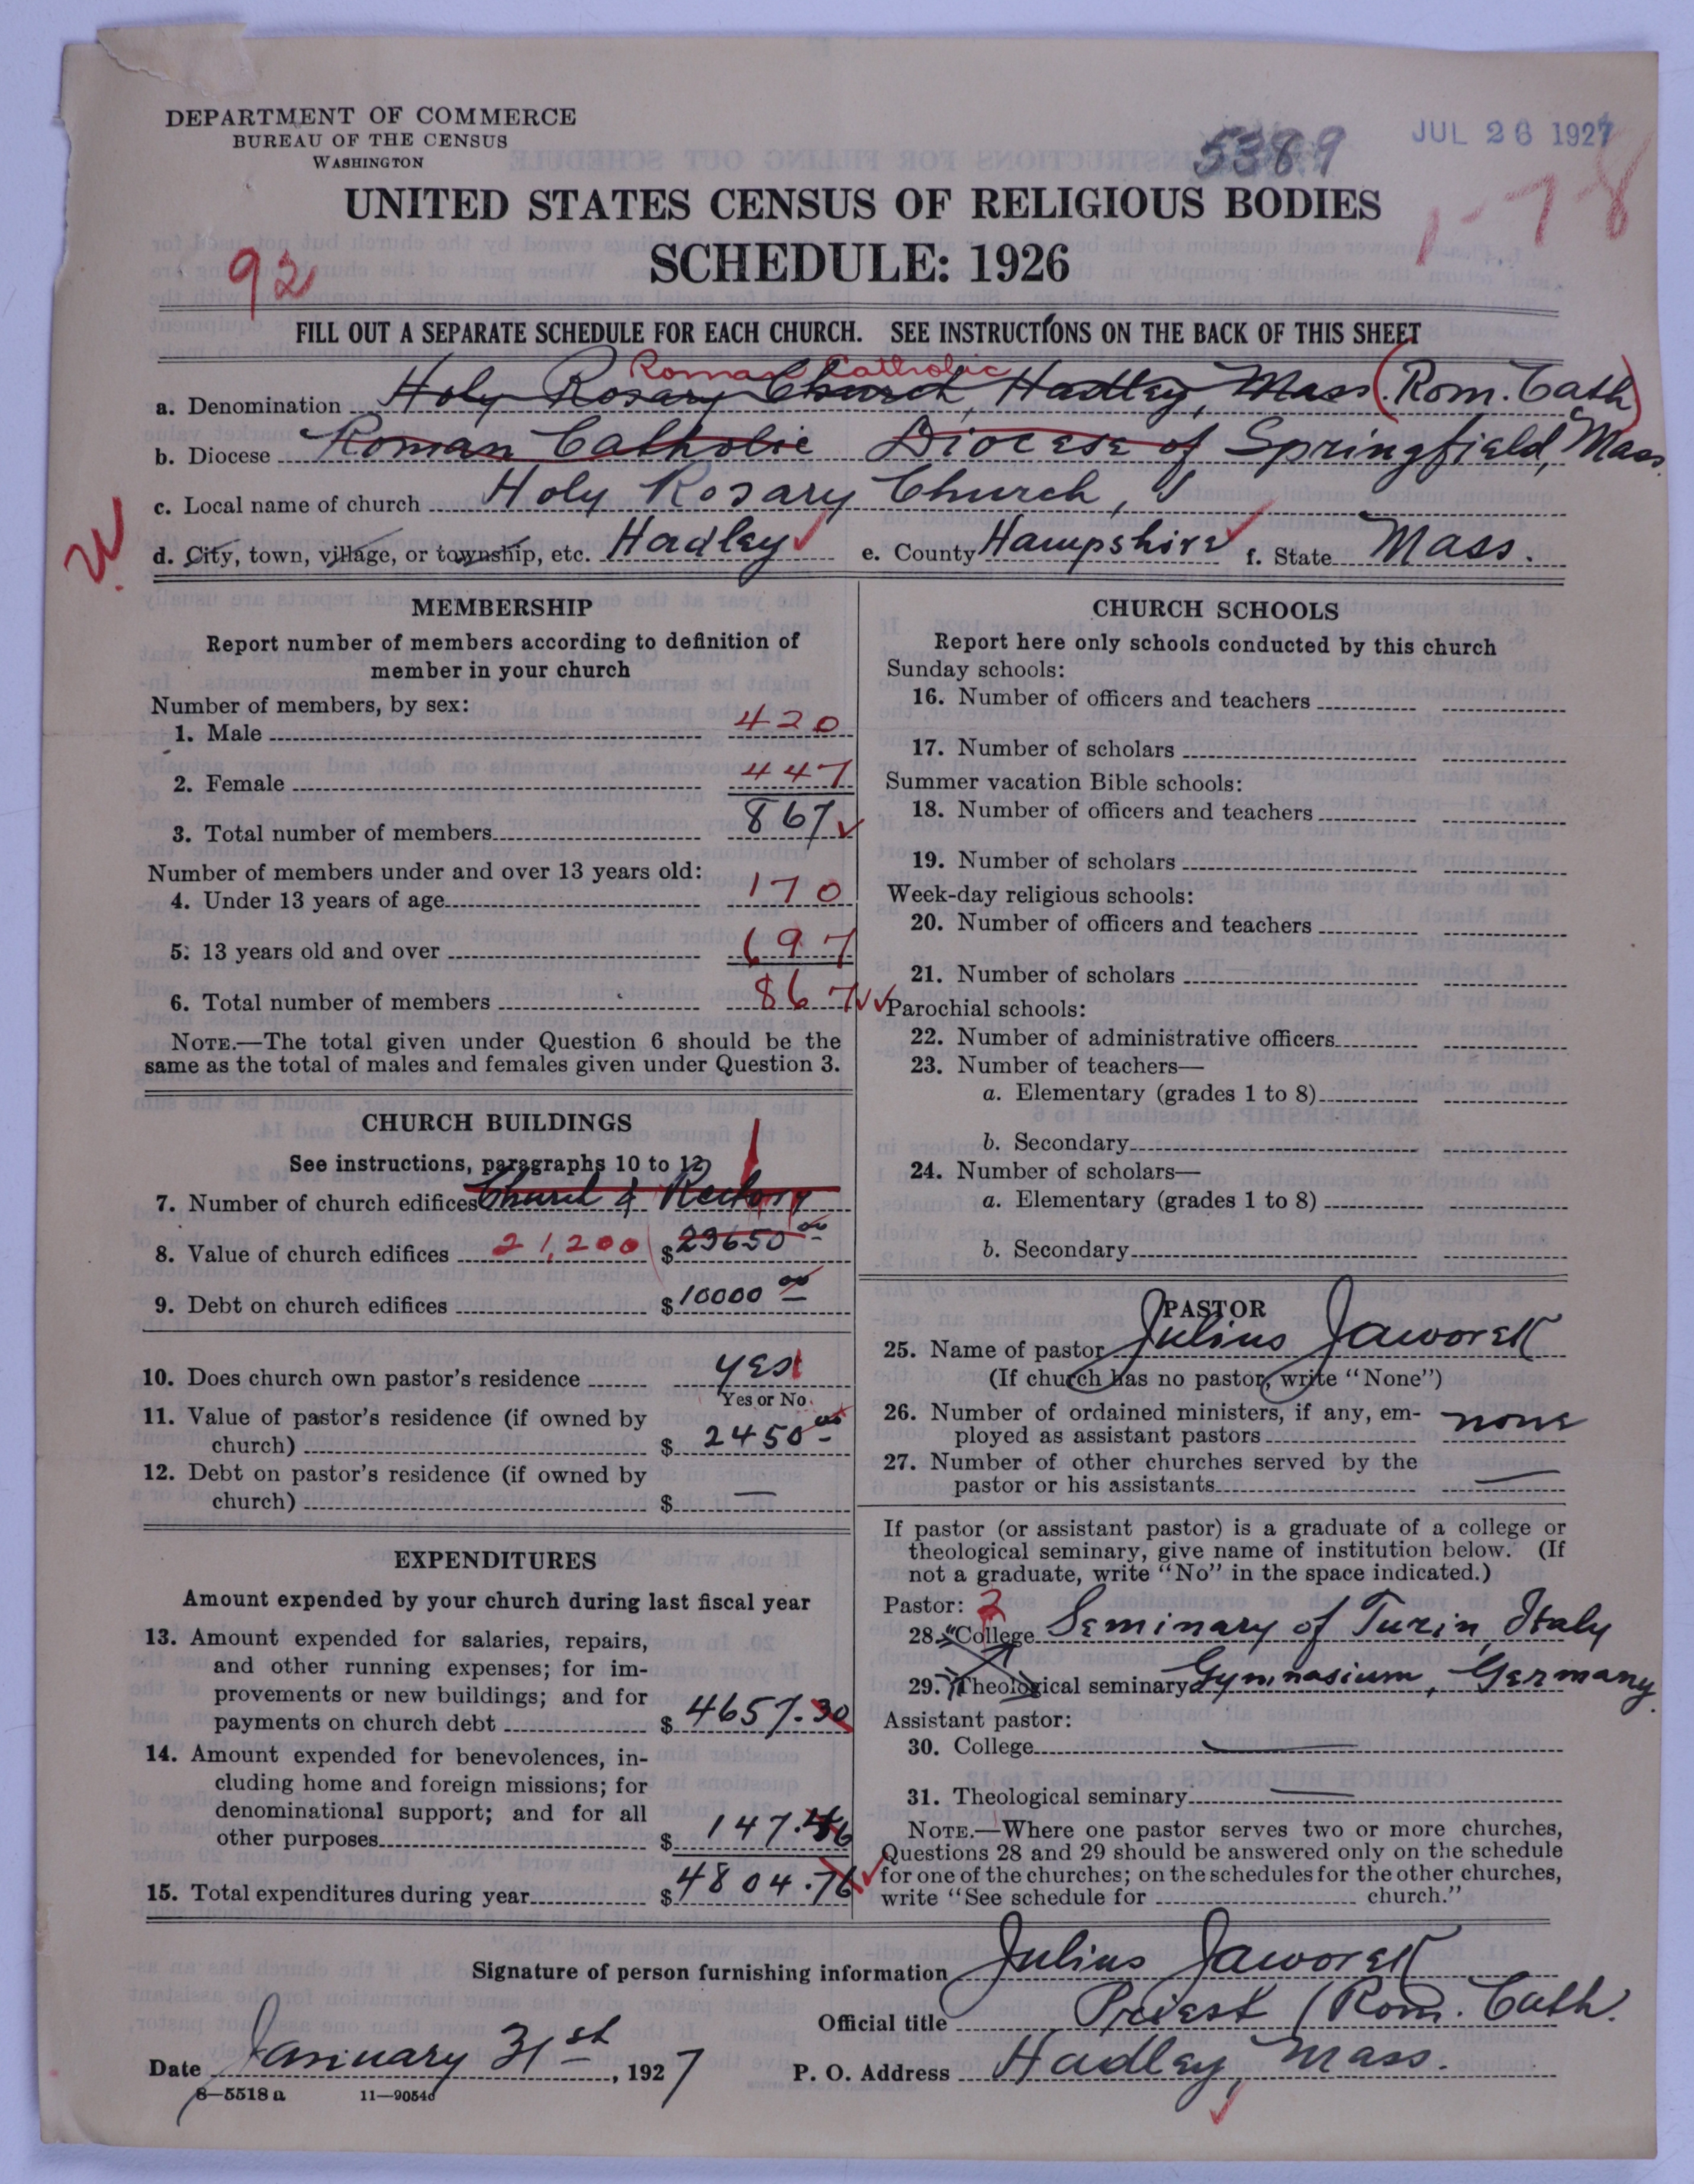 DEPARTMENT OF COMMERCE
BUREAU OF THE CENSUS
WASHINGTON
5389
JUL 26 1927
1-78
UNITED STATES CENSUS OF RELIGIOUS BODIES
SCHEDULE: 1926
92
FILL OUT A SEPARATE SCHEDULE FOR EACH CHURCH. SEE INSTRUCTIONS ON THE BACK OF THIS SHEET
Roman Catholic
a. Denomination Holy Rosary Church, Hadley, Mass. (Rom. Cath)
b. Diocese Roman Catholic Diocese of Springfield, Mass
c. Local name of church Holy Rosary Church,
d. City, town, village, or township, etc. Hadley e. County Hampshire f. State Mass.
MEMBERSHIP
Report number of members according to definition of
member in your church
Number of members, by sex:
1. Male 420
2. Female 447
3. Total number of members 867
Number of members under and over 13 years old:
4. Under 13 years of age 170
5. 13 years old and over 697
6. Total number of members 867
NOTE.—The total given under Question 6 should be the
same as the total of males and females given under Question 3.
CHURCH BUILDINGS
See instructions, paragraphs 10 to 12
7. Number of church edifices Church & Rectory 1
8. Value of church edifices 21,200 $23650 00
9. Debt on church edifices $10000 00
10. Does church own pastor's residence yes
Yes or No
11. Value of pastor's residence (if owned by
church) $ 2450 00
12. Debt on pastor's residence (if owned by
church) $ —
EXPENDITURES
Amount expended by your church during last fiscal year
13. Amount expended for salaries, repairs,
and other running expenses; for im-
provements or new buildings; and for
payments on church debt $ 4657.30
14. Amount expended for benevolences, in-
cluding home and foreign missions; for
denominational support; and for all
other purposes $ 147.46
15. Total expenditures during year $ 4804.76
CHURCH SCHOOLS
Report here only schools conducted by this church
Sunday schools:
16. Number of officers and teachers
17. Number of scholars
Summer vacation Bible schools:
18. Number of officers and teachers
19. Number of scholars
Week-day religious schools:
20. Number of officers and teachers
21. Number of scholars
Parochial schools:
22. Number of administrative officers
23. Number of teachers—
a. Elementary (grades 1 to 8)
b. Secondary
24. Number of scholars—
a. Elementary (grades 1 to 8)
b. Secondary
PASTOR
25. Name of pastor Julius Jaworek
(If church has no pastor, write "None")
26. Number of ordained ministers, if any, em-
ployed as assistant pastors none
27. Number of other churches served by the
pastor or his assistants —
If pastor (or assistant pastor) is a graduate of a college or
theological seminary, give name of institution below. (If
not a graduate, write "No" in the space indicated.)
Pastor: 2
28. College Seminary of Turin, Italy
29. Theological seminary Gymnasium, Germany.
Assistant pastor:
30. College —
31. Theological seminary —
NOTE.—Where one pastor serves two or more churches,
Questions 28 and 29 should be answered only on the schedule
for one of the churches; on the schedules for the other churches,
write "See schedule for church."
Signature of person furnishing information Julius Jaworek
Official title Priest (Rom. Cath.
Date January 31st, 1927 P. O. Address Hadley, Mass.
8—5518 a 11—9054d